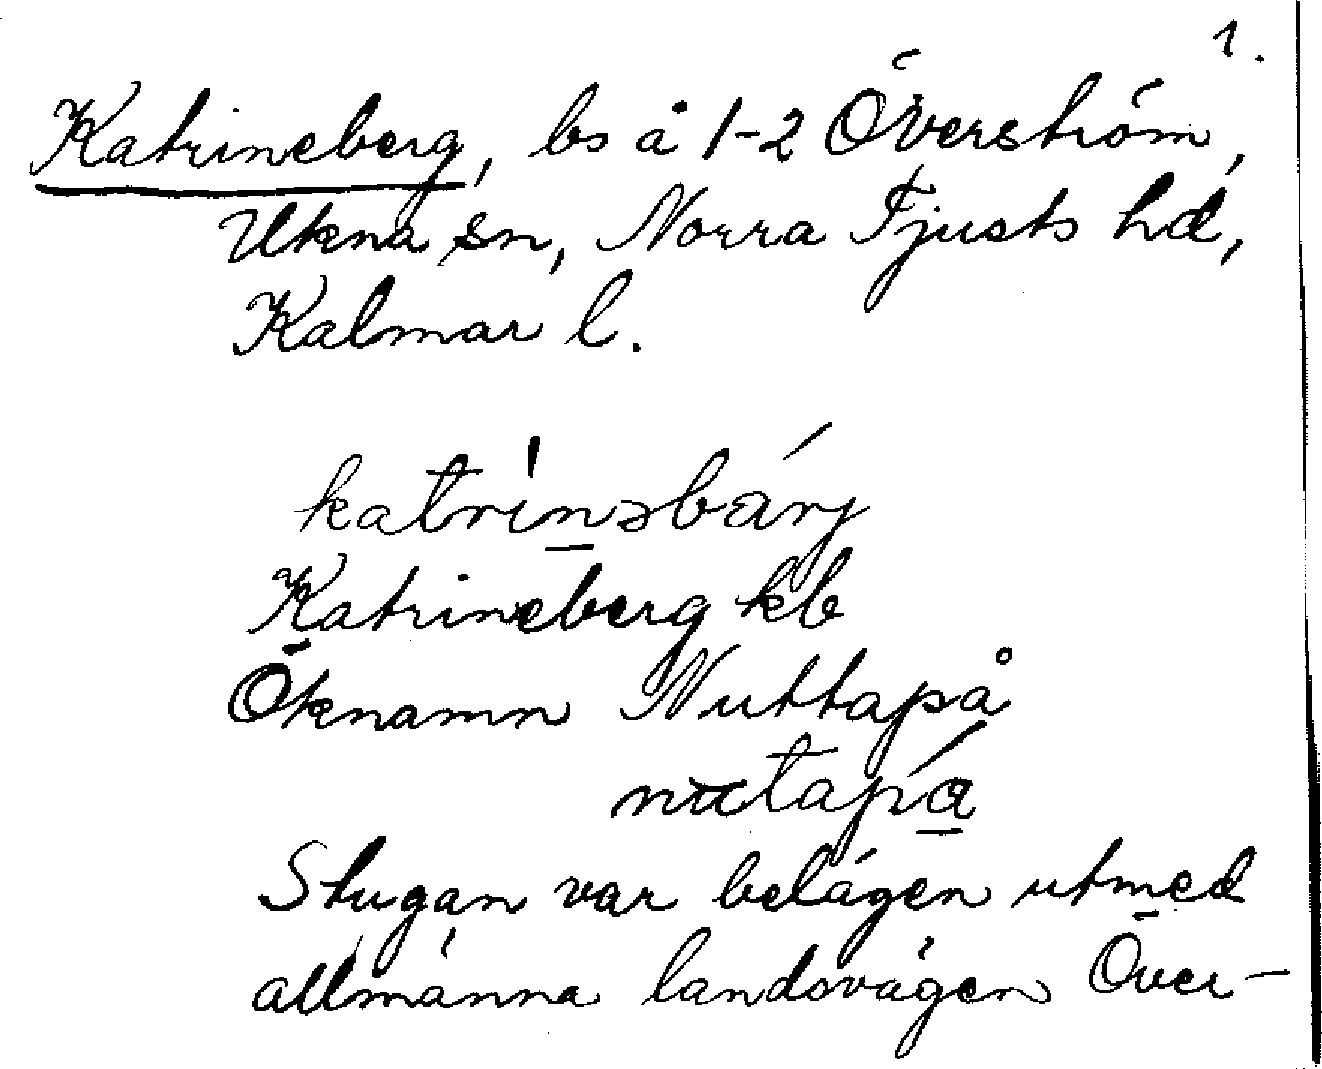 1.
Katrineberg, bs å 1-2 Överström,
Ukna sn, Norra Tjusts hd,
Kalmar l.
katrinsbärj
Katrineberg kb
Öknamn Nuttapå
nutapá
Stugan var belägen utmed
allmänna landsvägen Över-